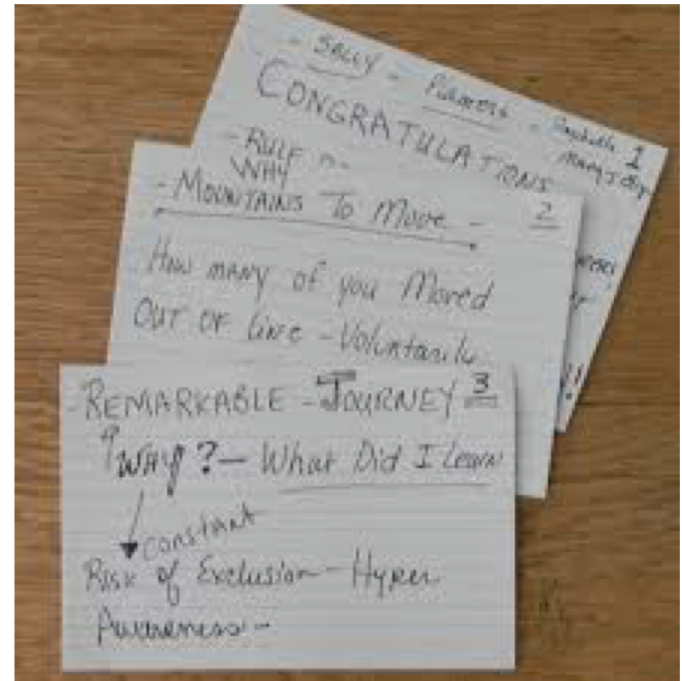 - SALLY -
CONGRATULATIONS
1
- RULE
WHY
- MOUNTAINS TO MOVE - 2
HOW MANY of you Moved
OUT OF LINE - Voluntarily
!!
- REMARKABLE - JOURNEY 3
WHY? - What Did I Learn
constant
RISK of Exclusion - Hyper
Awareness -